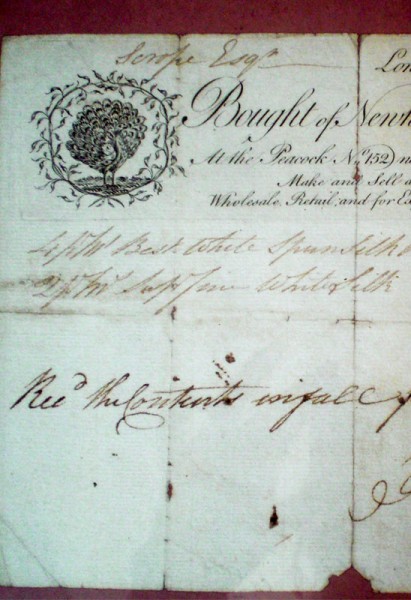 Scrope Esqr
Lon
Bought of Newm
At the Peacock No. 152
Make and Sell a
Wholesale, Retail, and for Ex
Best White Spun Silk
White Silk
Recd the Contents in full